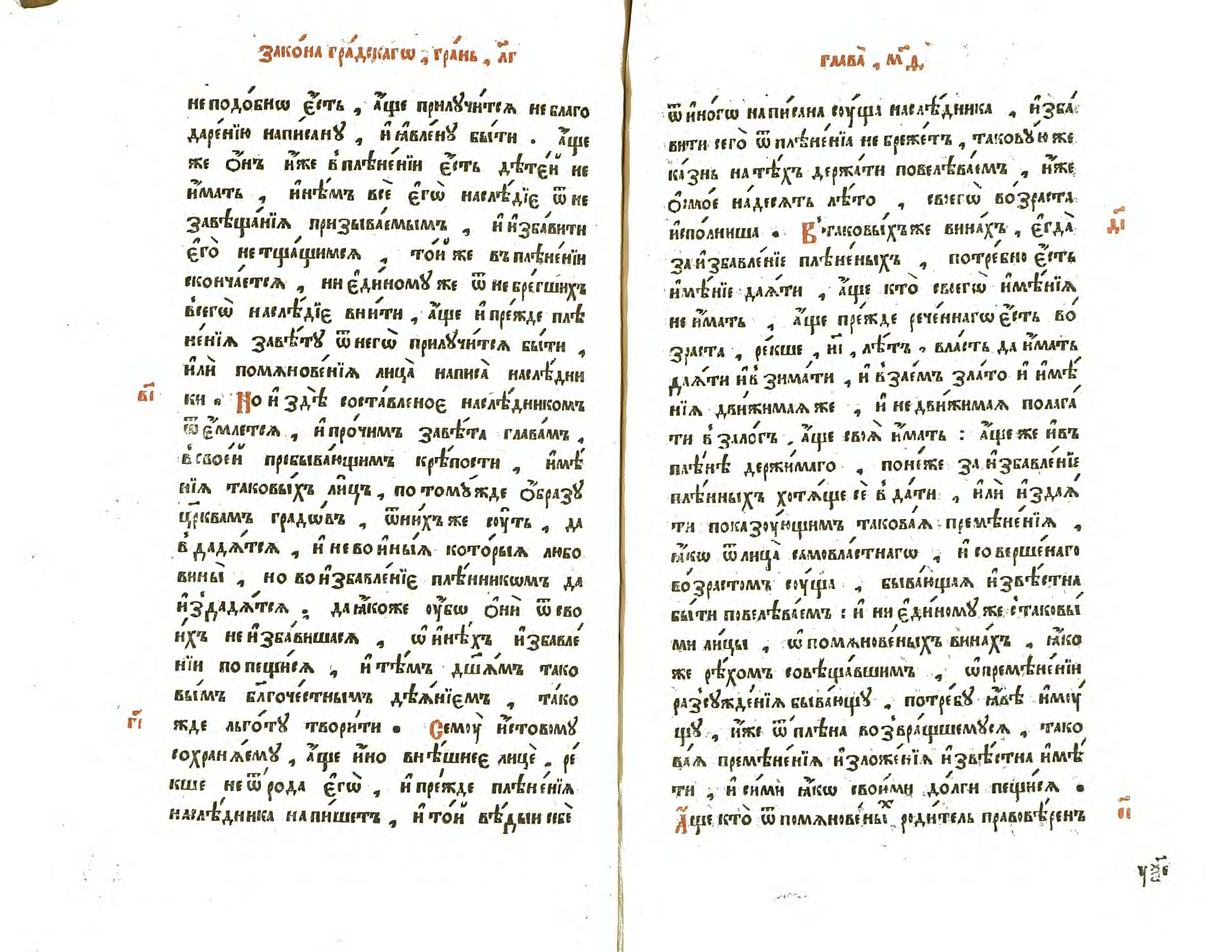 Зако́на гра́дскагѡ , гра́нь , л҃г
не подо́бнѡ є҆́сть , а҆́ще прилꙋчи́тсѧ не благо
даре́нїю написанꙋ , и҆ ꙗ҆вле́нꙋ бы́ти . а҆́ще
же ѻ҆́нъ и҆́же в̾плѣне́нїи є҆́сть дѣте́й не
и҆́мать , и҆нѣ́мъ всѐ є҆гѡ̀ наслѣ́дїє ѿ не
завѣща́нїѧ призыва́емымъ , и҆ и҆зба́вити
є҆го̀ не тща́щимсѧ , то́й же въ плѣне́нїи
сконча́етсѧ , ни є҆ди́номꙋ же ѿ небре́гшихъ
всегѡ̀ наслѣ́дїє вни́ти , а҆́ще и҆ пре́жде плѣ
не́нїѧ завѣ́тꙋ ѿ негѡ̀ прилꙋчи́тсѧ бы́ти ,
и҆лѝ помѧнове́нїѧ лица̀ написа̀ наслѣ́дни
в҃і
ки . Но и҆ здѣ̀ соста́вленоє наслѣ́дникомъ
ѿе́млетсѧ , и҆ про́чимъ завѣ́та глава́мъ ,
в̾ свое́й пребыва́ющимъ крѣ́пости , и҆мѣ́
нїѧ таковы́хъ ли́цъ , по томꙋ́жде ѻ҆́бразꙋ
цр҃квамъ градѡ́въ , ѿ ни́хъ же сꙋ́ть , да
в̾дадѧ́тсѧ , и҆ не во и҆ны́ѧ кото́рыѧ любо
вины̀ , но во и҆збавле́нїє плѣ́нникѡмъ да
и҆здадѧ́тсѧ . да ꙗ҆́коже ᲂу҆́бѡ ѻ҆нѝ ѿ сво
и́хъ не и҆зба́вишасѧ , ѡ҆ и҆нѣ́хъ и҆збавле́
нїи попещи́сѧ , и҆ тѣ́мъ дш҃а́мъ тако
вы́мъ бл҃гоче́стнымъ дѣѧ́нїємъ , та́ко
г҃і
жде льго́тꙋ твори́ти . Семꙋ̀ и҆́стовомꙋ
сохранѧ́емꙋ , а҆́ще и҆́но внѣ́шнеє лицѐ . ре́
кше не ѿ рода є҆гѡ̀ , и҆ пре́жде плѣне́нїѧ
наслѣ́дника напи́шетъ , и҆ то́й вѣ́дыи себѐ
глава̀ , м҃д
ѿ и҆но́гѡ написана сꙋ́ща наслѣ́дника , и҆зба́
вити сего̀ ѿ плѣне́нїѧ не брежє́тъ , таковꙋ́ю же
ка́знь на тѣ́хъ держа́ти повелѣва́емъ , и҆́же
ѻ҆смо́е на́десѧть лѣ́то , своегѡ̀ во́зраста
д҃і
и҆спо́лниша . В̾ такoвы́хъ же вина́хъ , є҆гда̀
за и҆збавле́нїє плѣне́ныхъ , потре́бно є҆́сть
и҆мѣ́нїє даѧ́ти , а҆́ще кто̀ своегѡ̀ и҆мѣ́нїѧ
не и҆́мать , а҆́ще пре́жде рече́ннагѡ є҆́сть во́
зраста , ре́кше , и҃і , лѣ́тъ , вла́сть да и҆́мать
даѧ́ти и҆ в̾зима́ти , и҆ в̾за́емъ зла́то и҆ и҆мѣ́
нїѧ дви́жимаѧ же , и҆ недви́жимаѧ полага́
ти в̾ зало́гъ , а҆́ще своѧ̀ и҆́мать : а҆́ще же и҆ въ
плѣ́нѣ держи́маго , поне́же за и҆збавле́нїе
плѣ́нныхъ хотѧ́ще сѐ в̾да́ти , и҆лѝ и҆здаѧ́
ти показꙋ́ющимъ такова́ѧ премѣне́нїѧ ,
ꙗ҆́кѡ ѿ лица̀ самовла́стнагѡ , и҆ соверше́наго
во́зрастомъ сꙋ́ща , быва́ющаѧ и҆звѣ́стна
бы́ти повелѣва́емъ : и҆ ни є҆ди́номꙋ же с̾таковы́
ми лицы̀ , ѡ҆ помѧнове́ныхъ вина́хъ , ꙗ҆́ко
же рѣ́хомъ совѣща́вшимъ , ѡ҆ премѣне́нїи
разсꙋжде́нїѧ быва́ющꙋ , потре́бꙋ ꙗ҆́вѣ и҆мꙋ́
щꙋ , и҆́же ѿ плѣ́на возвра́щшемꙋсѧ , тако
ва́ѧ премѣне́нїѧ и҆зложе́нїѧ и҆звѣ́стна и҆мѣ́
ти , и҆ си́ми ꙗ҆́кѡ свои́ми до́лги пещи́сѧ .
є҃і
А҆́ще кто̀ ѿ помѧнове́ныⷯ роди́тель правовѣ́ренъ